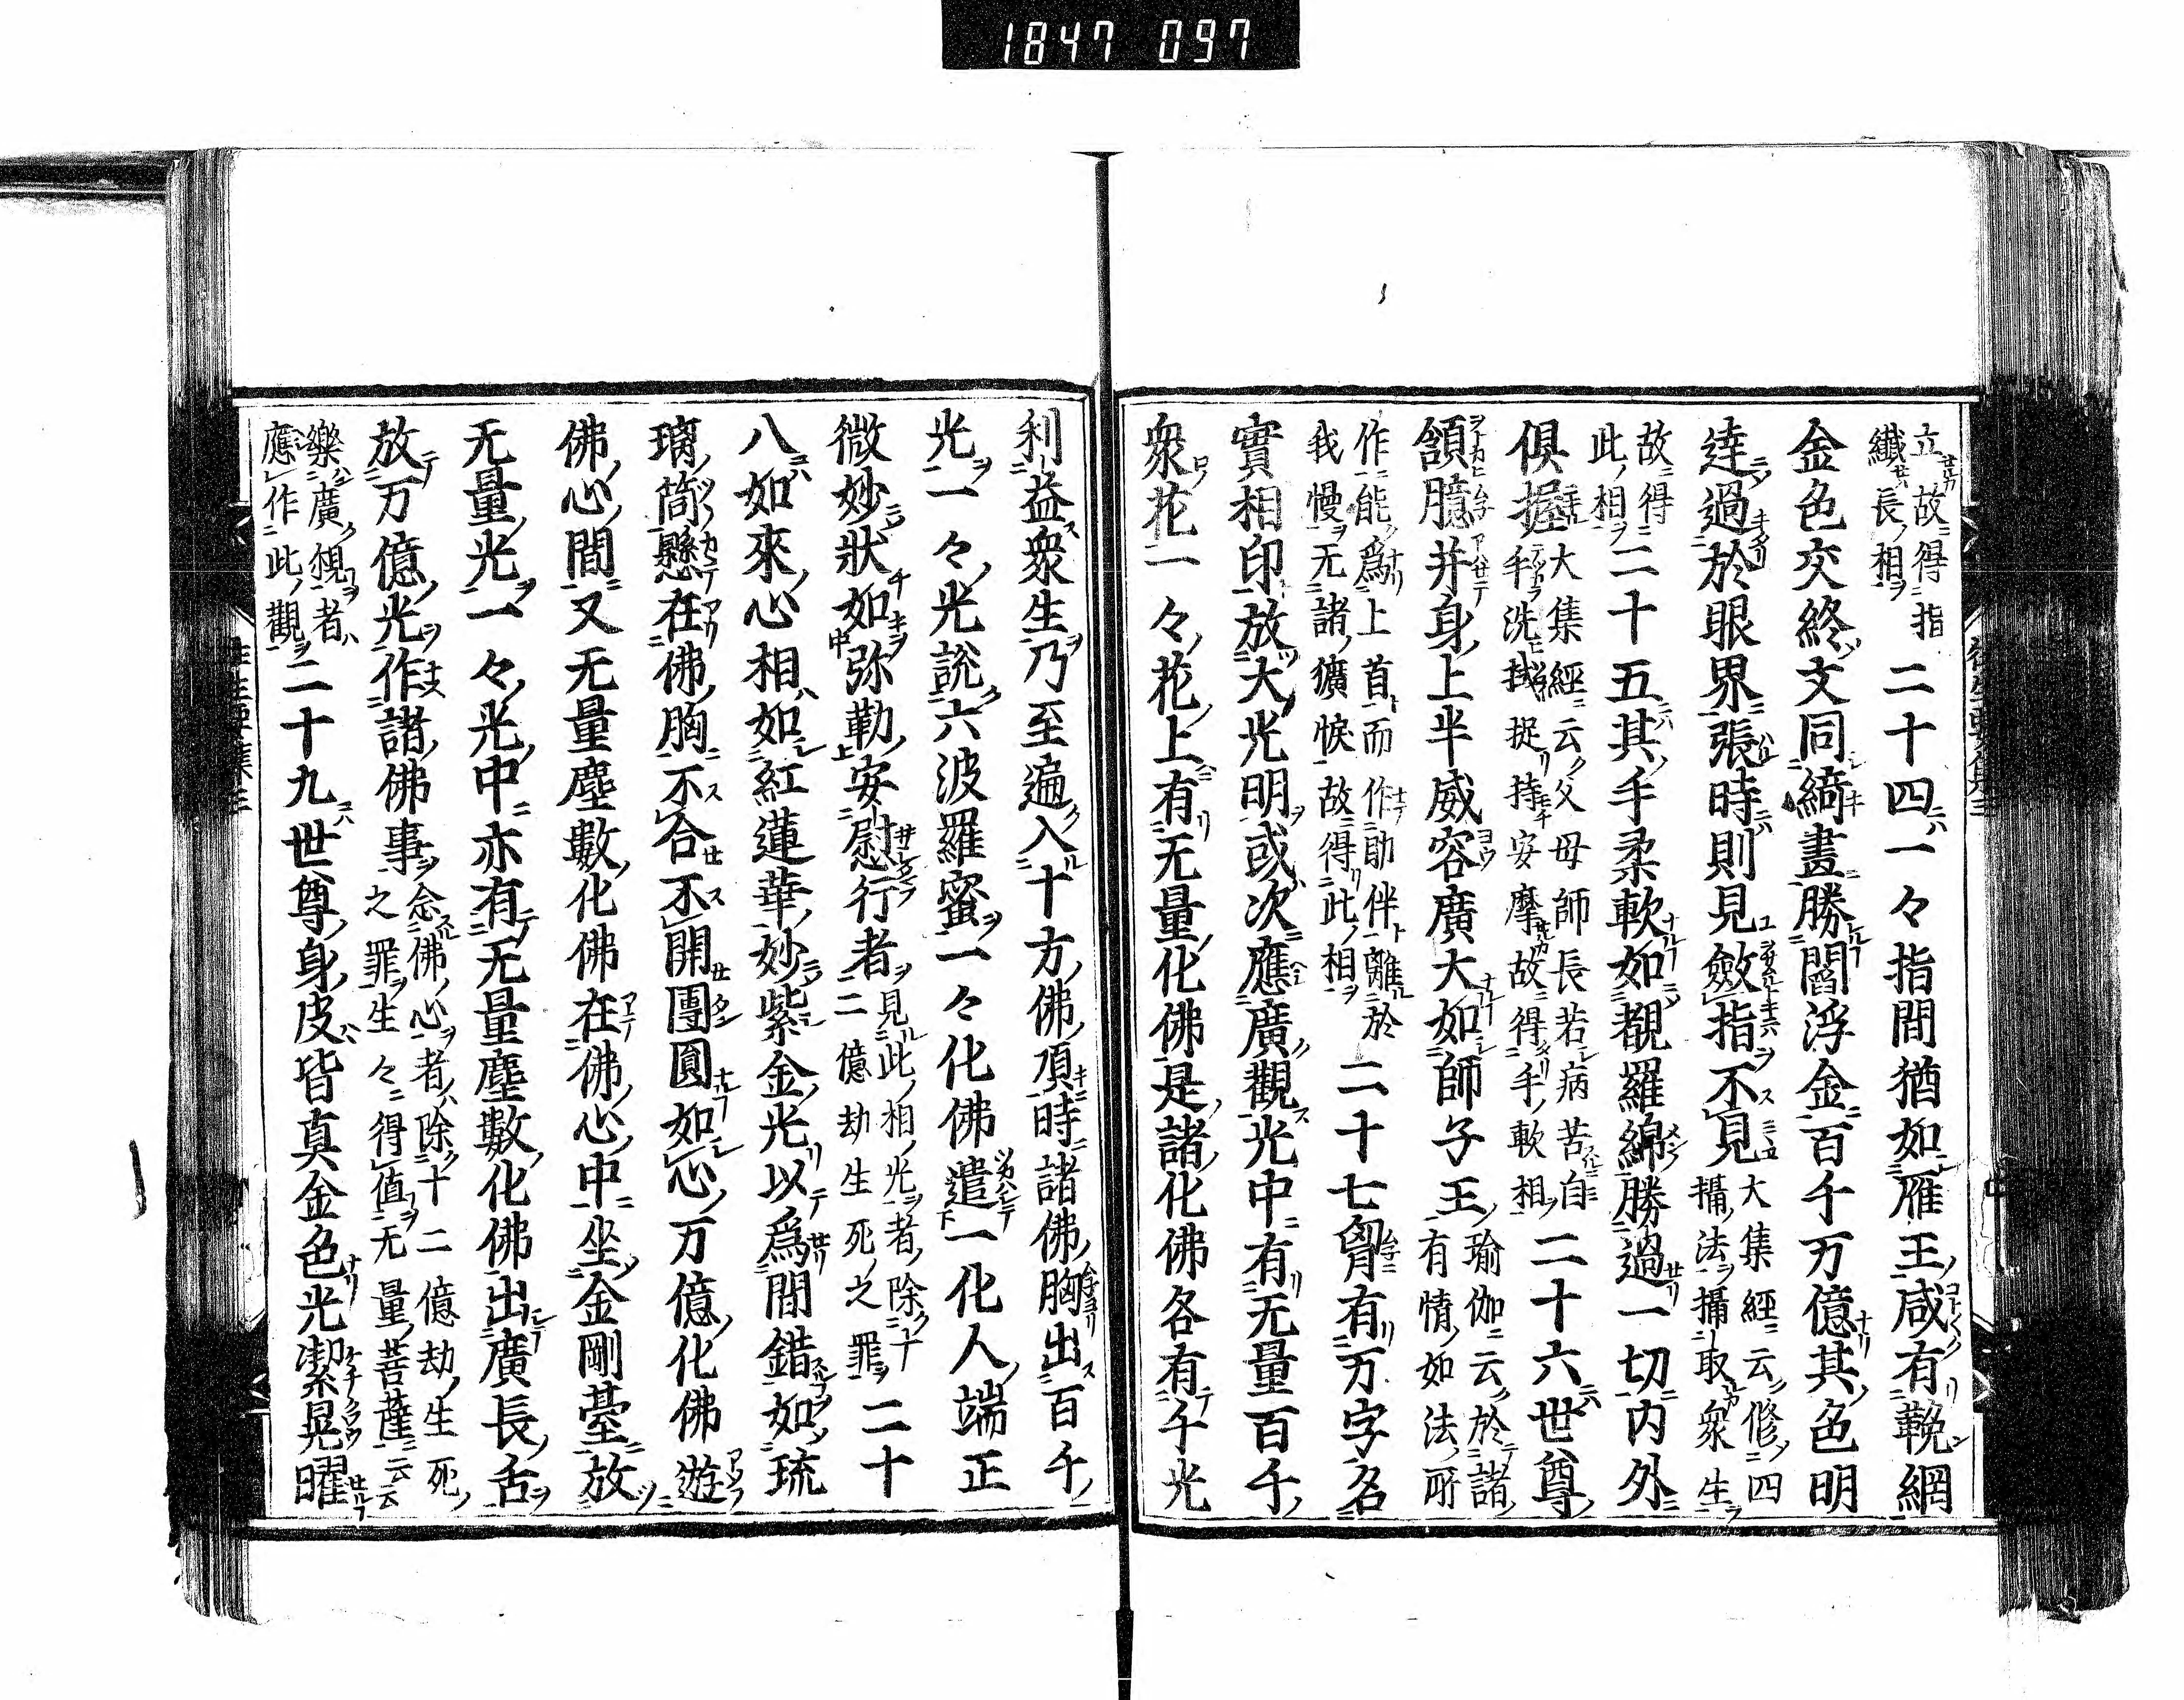 1847 097
立故得指
纖長相
二十四一々指間猶如雁王咸有鞔網
金色交絡文同綺畫勝閻浮金百千万億其色明
達過於眼界張時則見斂指不見
大集經云修四
攝法攝取衆生
故得
此相
二十五其手柔軟如覩羅綿勝過一切内外
俱握
大集經云父母師長若病苦自
手洗拭捉持安摩故得手軟相
二十六世尊
頷臆并身上半威容廣大如師子王
瑜伽云於諸
有情如法所
作能爲上首而作助伴離於
我慢无諸獷悷故得此相
二十七胷有万字名
實相印放大光明或次應廣觀光中有无量百千
衆花一々花上有无量化佛是諸化佛各有千光
利益衆生乃至遍入十方佛頂時諸佛胸出百千
光一々光説六波羅蜜一々化佛遣一化人端正
微妙狀如弥勒安慰行者
見此相光者除十
二億劫生死之罪
二十
八如來心相如紅蓮華妙紫金光以爲間錯如琉
璃筒懸在佛胸不合不開團圓如心万億化佛遊
佛心間又无量塵數化佛在佛心中坐金剛臺放
无量光一々光中亦有无量塵數化佛出廣長舌
放万億光作諸佛事
念佛心者除十二億劫生死
之罪生々得值无量菩薩云云
樂廣觀者
應作此觀
二十九世尊身皮皆真金色光潔晃曜